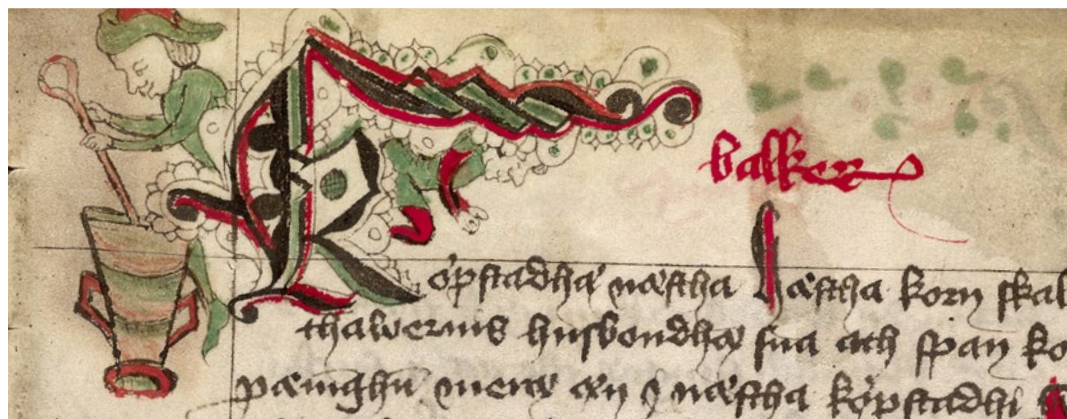 balker
Köpstadha næstha hæstha korn skal
thalvernis husbondha sua ath span ko
pæninghū mera æn i næstha köpstadhi